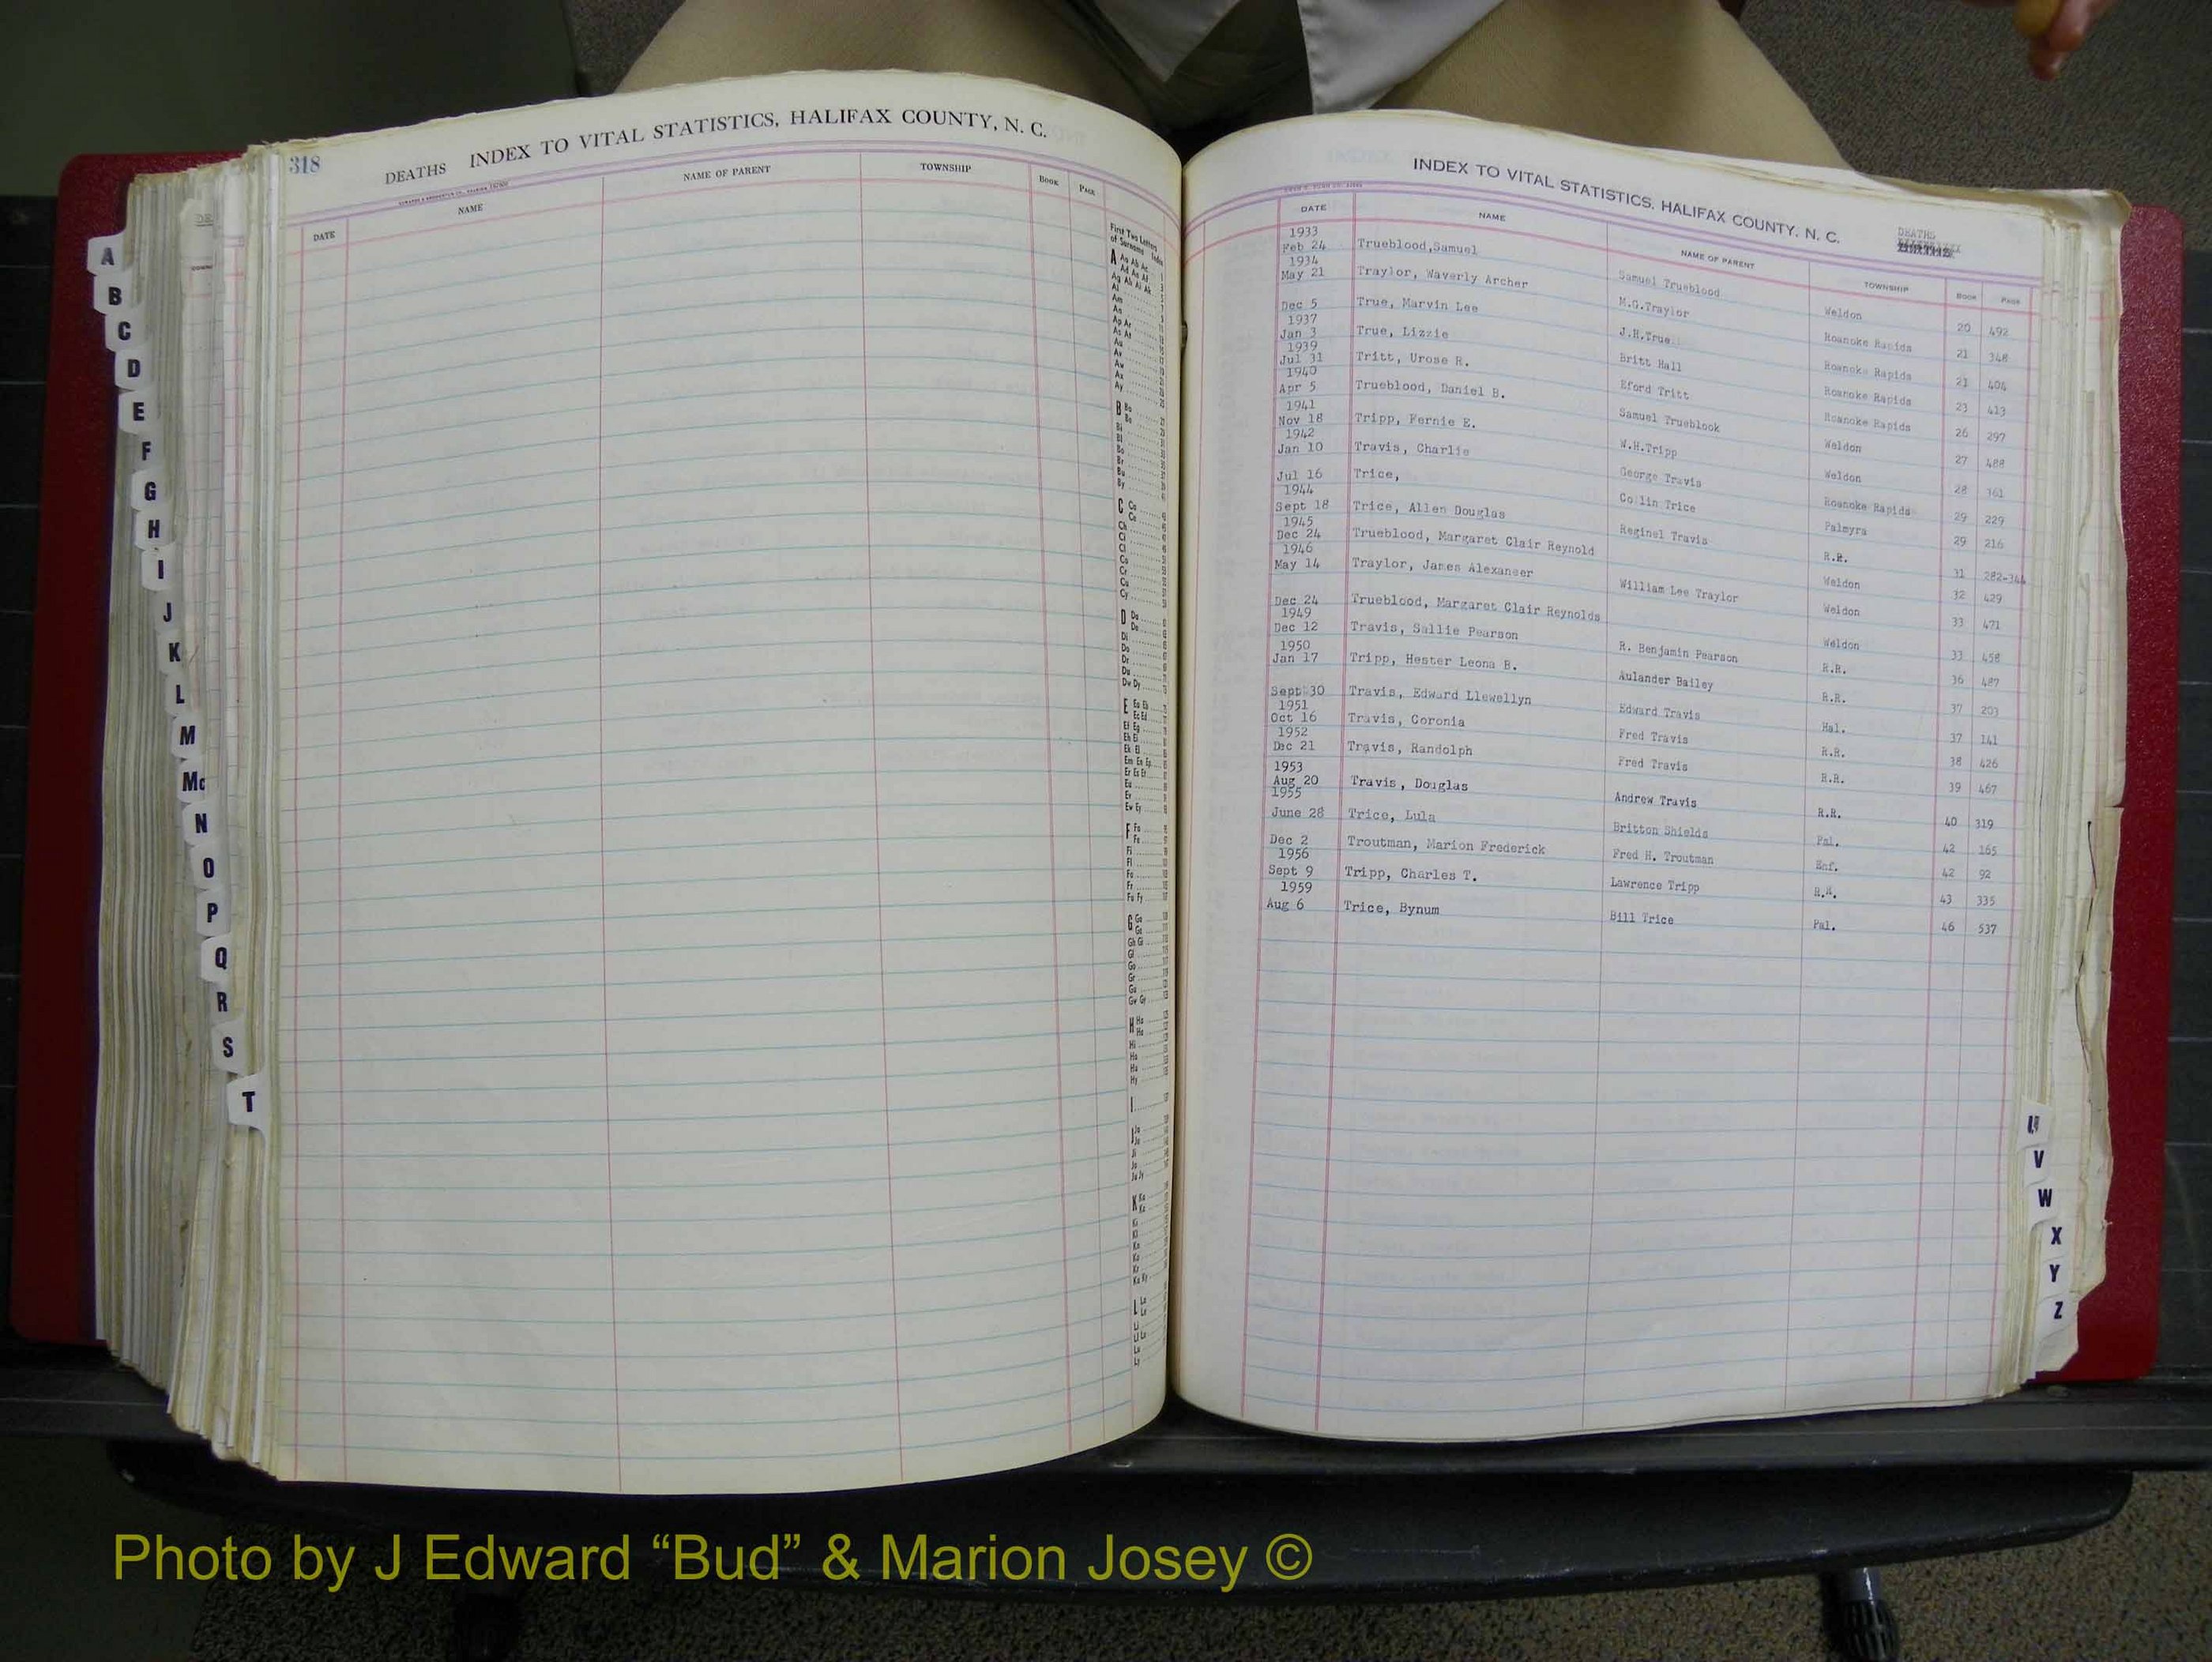 318
DEATHS INDEX TO VITAL STATISTICS, HALIFAX COUNTY, N. C.
DATE NAME NAME OF PARENT TOWNSHIP BOOK PAGE
First Two Letters
of Surname Index
A
B
C
D
E
F
G
H
I
J
K
L
M
Mc
N
O
P
Q
R
S
T
INDEX TO VITAL STATISTICS, HALIFAX COUNTY, N. C. DEATHS
DATE NAME NAME OF PARENT TOWNSHIP BOOK PAGE
1933
Feb 24 Trueblood,Samuel Samuel Trueblood Weldon 20 492
1934
May 21 Traylor, Waverly Archer M.G.Traylor Roanoke Rapids 21 348
Dec 5 True, Marvin Lee J.H.True Roanoke Rapids 21 404
1937
Jan 3 True, Lizzie Britt Hall Roanoke Rapids 23 413
1939
Jul 31 Tritt, Urose R. Eford Tritt Roanoke Rapids 26 297
1940
Apr 5 Trueblood, Daniel B. Samuel Trueblook Weldon 27 488
1941
Nov 18 Tripp, Fernie E. W.H.Tripp Weldon 28 161
1942
Jan 10 Travis, Charlie George Travis Roanoke Rapids 29 229
Jul 16 Trice, Collin Trice Palmyra 29 216
1944
Sept 18 Trice, Allen Douglas Reginel Travis R.R. 31 282-344
1945
Dec 24 Trueblood, Margaret Clair Reynold Weldon 32 429
1946
May 14 Traylor, James Alexaneer William Lee Traylor Weldon 33 471
Dec 24 Trueblood, Margaret Clair Reynolds Weldon 33 458
1949
Dec 12 Travis, Sallie Pearson R. Benjamin Pearson R.R. 36 487
1950
Jan 17 Tripp, Hester Leona B. Aulander Bailey R.R. 37 203
Sept 30 Travis, Edward Llewellyn Edward Travis Hal. 37 141
1951
Oct 16 Travis, Coronia Fred Travis R.R. 38 426
1952
Dec 21 Travis, Randolph Fred Travis R.R. 39 467
1953
Aug 20 Travis, Douglas Andrew Travis R.R. 40 319
1955
June 28 Trice, Lula Britton Shields Pal. 42 165
Dec 2 Troutman, Marion Frederick Fred H. Troutman Enf. 42 92
1956
Sept 9 Tripp, Charles T. Lawrence Tripp R.R. 43 335
1959
Aug 6 Trice, Bynum Bill Trice Pal. 46 537
U
V
W
X
Y
Z
Photo by J Edward “Bud” & Marion Josey ©